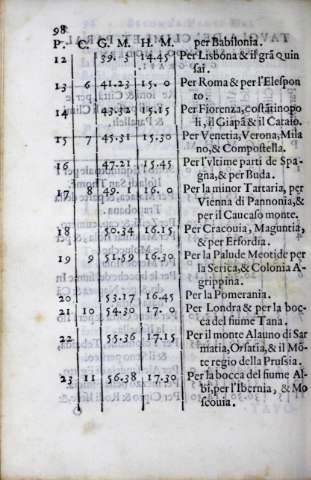 98
P. C. G. M. H. M. per Babilonia.
12 39.5 14.45 Per Lisbóna & il grã quin
sai.
13 6 41.23 15. 0 Per Roma & per l'Elespon
to.
14 43.32 15.15 Per Fiorenza, costãtinopo
li, il Giapã & il Cataio.
15 7 45.31 15.30 Per Venetia, Verona, Mila
no, & Compostella.
16 47.21 15.45 Per l'vltime parti de Spa
gna, & per Buda.
17 8 49.1 16. 0 Per la minor Tartaria, per
Vienna di Pannonia, &
per il Caucaso monte.
18 50.34 16.15 Per Cracouia, Maguntia,
& per Erfordia.
19 9 51.59 16.30 Per la Palude Meotide per
la Serica, & Colonia A-
grippina.
20 53.17 16.45 Per la Pomerania.
21 10 54.30 17. 0 Per Londra & per la boc-
ca del fiume Tana.
22 55.36 17.15 Per il monte Alauno di Sar
matia, Orsatia, & il Mõ-
te regio della Prussia.
23 11 56.38 17.30 Per la bocca del fiume Al-
bi, per l'Ibernia, & Mo
scouia.